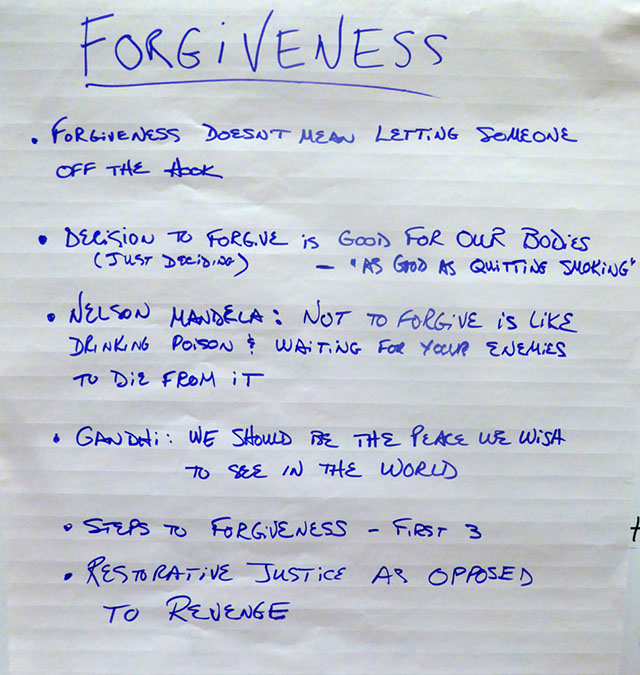 FORGIVENESS
• FORGIVENESS DOESN'T MEAN LETTING SOMEONE
OFF THE HOOK
• DECISION TO FORGIVE IS GOOD FOR OUR BODIES
(JUST DECIDING) – "AS GOOD AS QUITTING SMOKING"
• NELSON MANDELA: NOT TO FORGIVE IS LIKE
DRINKING POISON & WAITING FOR YOUR ENEMIES
TO DIE FROM IT
• GANDHI: WE SHOULD BE THE PEACE WE WISH
TO SEE IN THE WORLD
• STEPS TO FORGIVENESS – FIRST 3
• RESTORATIVE JUSTICE AS OPPOSED
TO REVENGE